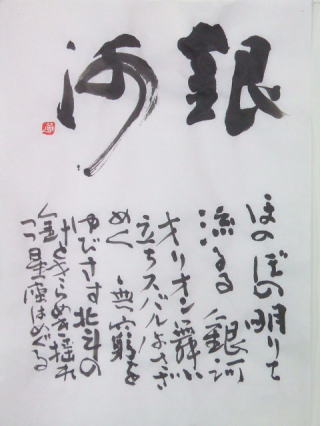 銀河
ほのぼの明りて
流るる 銀河
オリオン舞い
立ちスバルはさざ
めく 無窮を
ゆびさす北斗の
針ときらめき揺れ
つつ星座はめぐる